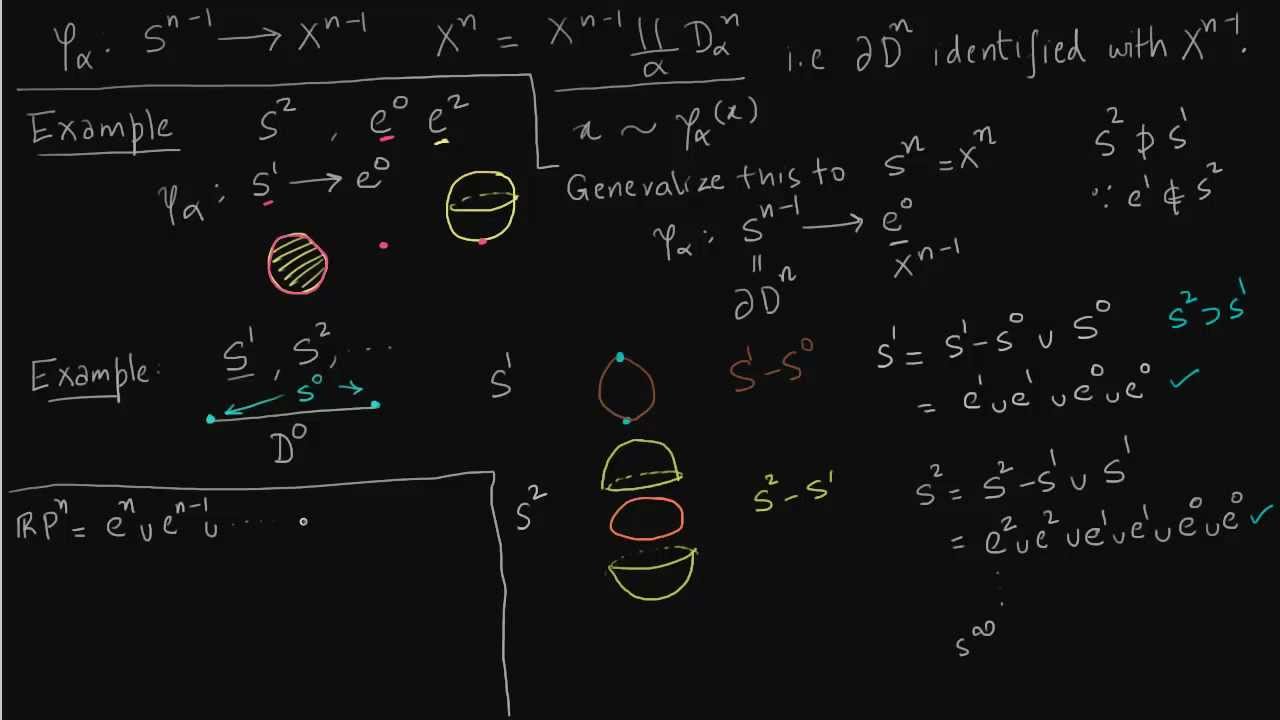 φ_α : S^{n-1} → X^{n-1} X^n = X^{n-1} ∐_α D_α^n i.e ∂D^n identified with X^{n-1}.
x ~ φ_α(x)
Example S^2 , e^0 e^2
φ_α : S^1 → e^0
Generalize this to S^n = X^n
φ_α : S^{n-1} → e^0
|| X^{n-1}
∂D^n
S^2 ⊅ S^1
∵ e^1 ⊄ S^2
Example: S^1 , S^2 , ....
S^0
D^0
S^1 S^1 - S^0
S^2 S^2 - S^1
S^1 = S^1 - S^0 ∪ S^0 S^2 ⊃ S^1
= e^1 ∪ e^1 ∪ e^0 ∪ e^0 ✓
S^2 = S^2 - S^1 ∪ S^1
= e^2 ∪ e^2 ∪ e^1 ∪ e^1 ∪ e^0 ∪ e^0 ✓
⋮
S^∞
RP^n = e^n ∪ e^{n-1} ∪ ......